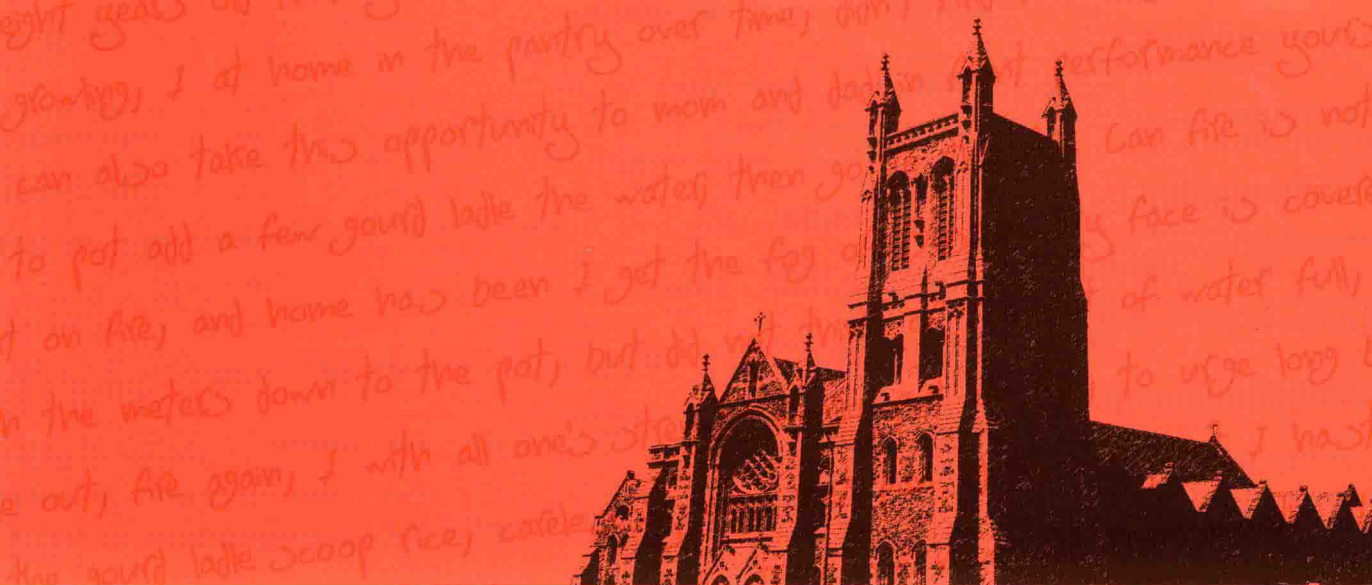 eight years old
growing, I at home in the pantry over time, didn't
can also take this opportunity to mom and dad in performance yours
to pot add a few gourd ladle the water, then go Can fire is not
on fire, and home has been I get the fog face is covered
the meters down to the pot, but did not of water full,
out, fire again, I with all one's to urge long
the gourd ladle scoop rice, I has